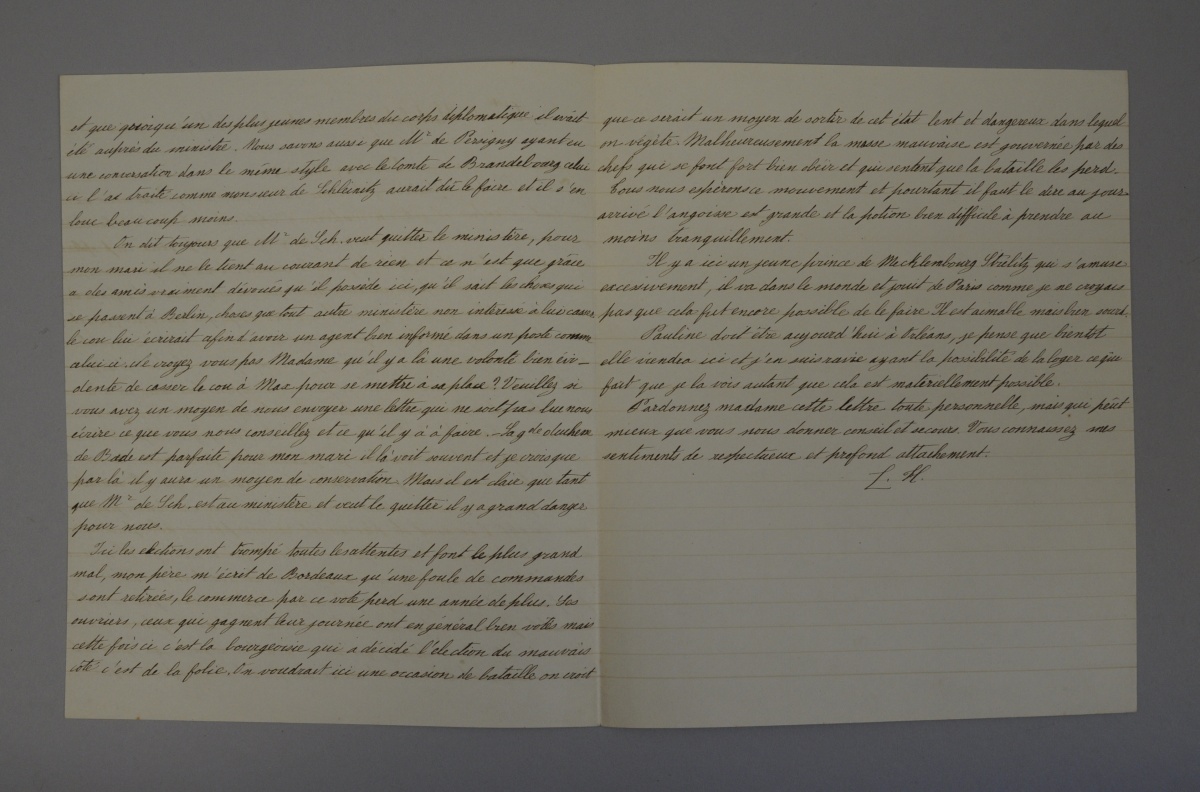 et que quoiqu'un des plus jeunes membres du corps diplomatique il avait
été auprès du ministre. Nous savons aussi que Mr de Persigny ayant eu
une conversation dans le même style avec le Comte de Brandebourg celui
ci l'a traité comme monsieur de Schleinitz aurait dû le faire et il s'en
loue beaucoup moins.
On dit toujours que Mr de Sch. veut quitter le ministère, pour
mon mari il ne le tient au courant de rien et ce n'est que grâce
a des amis vraiment dévoués qu'il possède ici, qu'il sait les choses qui
se passent à Berlin, choses que tout autre ministère non intéressé à lui casser
le cou lui écrirait afin d'avoir un agent bien informé dans un poste comme
celui ci. Ne croyez vous pas Madame qu'il y a là une volonté bien évi-
dente de casser le cou à Max pour se mettre à sa place? Veuillez si
vous avez un moyen de nous envoyer une lettre qui ne soit pas lue nous
écrire ce que vous nous conseillez et ce qu'il y a à faire. La gde duchesse
de Bade est parfaite pour mon mari il la voit souvent et je crois que
par là il y aura un moyen de conservation. Mais il est clair que tant
que Mr de Sch. est au ministère et veut le quitter il y a grand danger
pour nous.
Ici les elections ont trompé toutes les attentes et font le plus grand
mal, mon père m'écrit de Bordeaux qu'une foule de commandes
sont retirées, le commerce par ce vote perd une année de plus. Les
ouvriers, ceux qui gagnent leur journée ont en général bien votés mais
cette fois ci c'est la bourgeoisie qui a décidé l'élection du mauvais
côté c'est de la folie. On voudrait ici une occasion de bataille on croit
que ce serait un moyen de sortir de cet état lent et dangereux dans lequel
on végète. Malheureusement la masse mauvaise est gouvernée par des
chefs qui se font fort bien obéir et qui sentent que la bataille les perd.
Tous nous espérons ce mouvement et pourtant il faut le dire au jour
arrivé l'angoisse est grande et la potion bien difficile à prendre au
moins tranquillement.
Il y a ici un jeune prince de Mecklembourg Strelitz qui s'amuse
excessivement, il va dans le monde et jouit de Paris comme je ne croyais
pas que cela fut encore possible de le faire. Il est aimable mais bien sourd.
Pauline doit être aujourd'hui à Orléans, je pense que bientôt
elle viendra ici et j'en suis ravie ayant la possibilité de la loger ce qui
fait que je la vois autant que cela est matériellement possible.
Pardonnez madame cette lettre toute personnelle, mais qui peut
mieux que vous nous donner conseil et secours. Vous connaissez mes
sentiments de respectueux et profond attachement.
L. H.